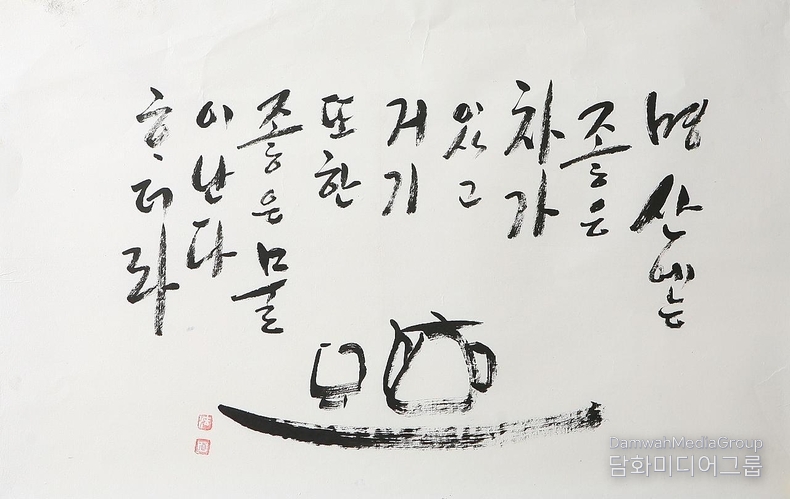 명산에는
좋은
차가
있고
거기
또한
좋은 물
이 난다
하더라
DamwanMediaGroup
담화미디어그룹